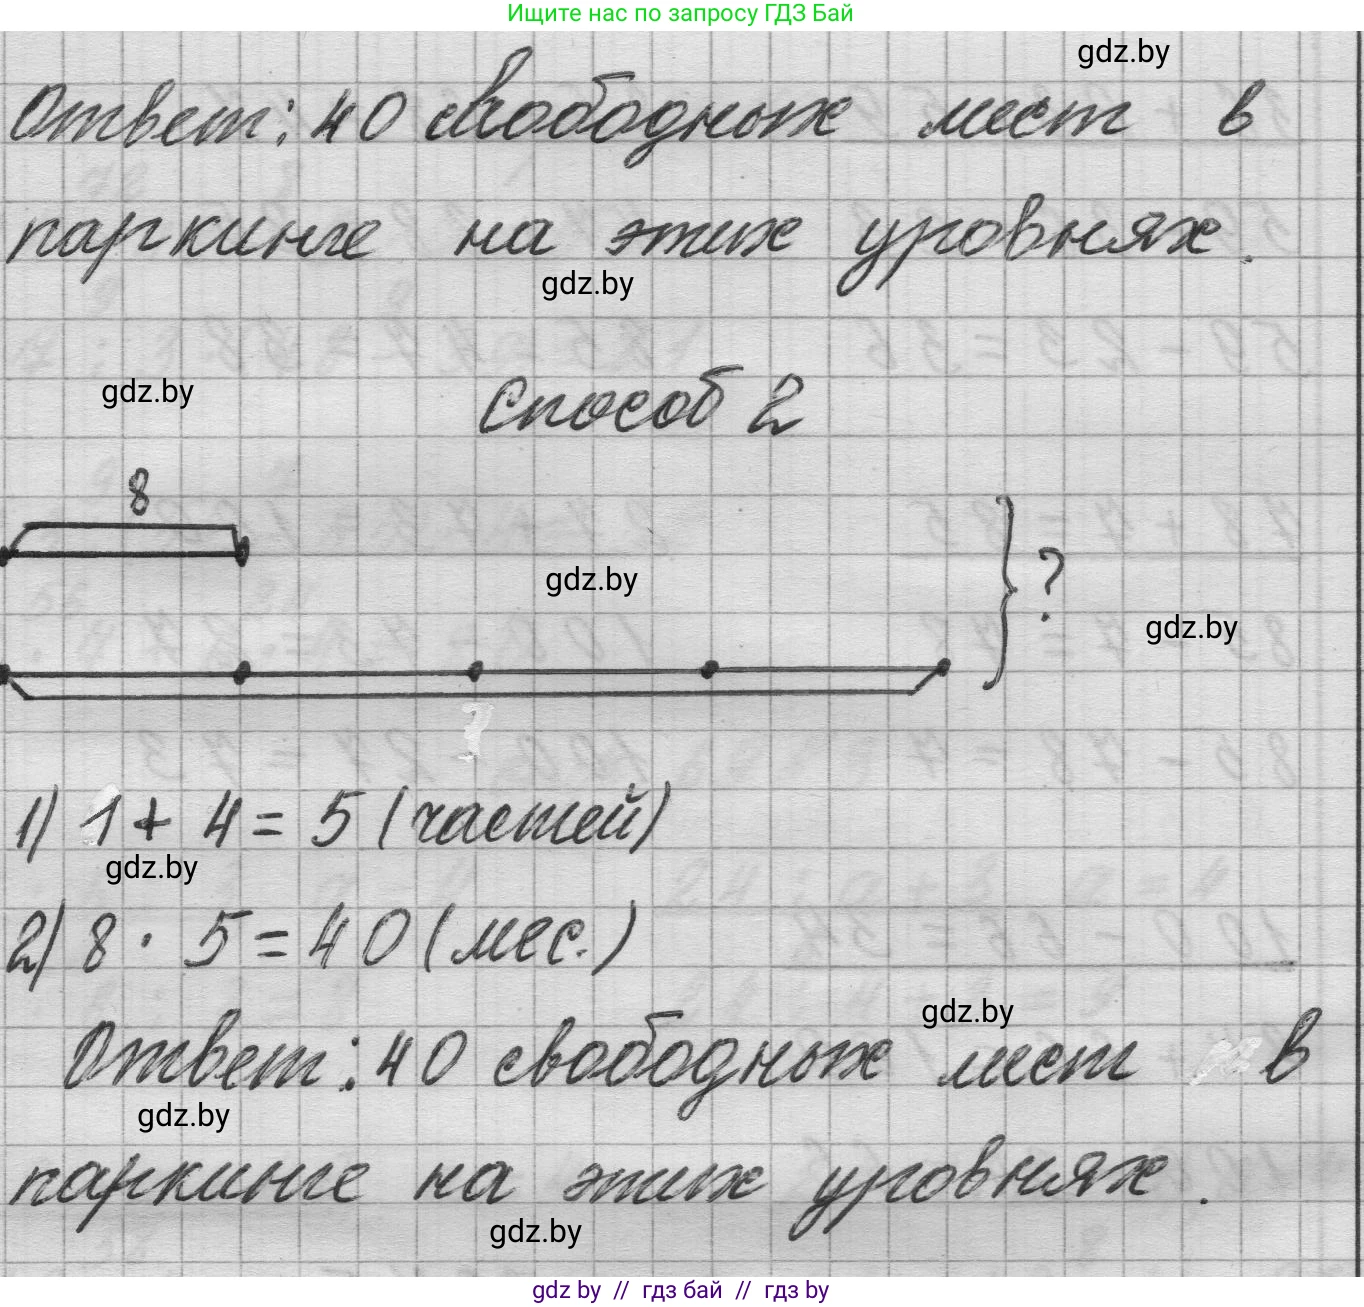 Ищите нас по запросу ГДЗ Бай
gdz.by
Ответ: 40 свободных мест в
паркинге на этих уровнях.
gdz.by
gdz.by
Способ 2
8
gdz.by
?
gdz.by
1) 1 + 4 = 5 (частей)
gdz.by
2) 8 · 5 = 40 (мес.)
gdz.by
Ответ: 40 свободных мест в
gdz.by
паркинге на этих уровнях.
gdz.by
gdz by // гдз бай // гдз by